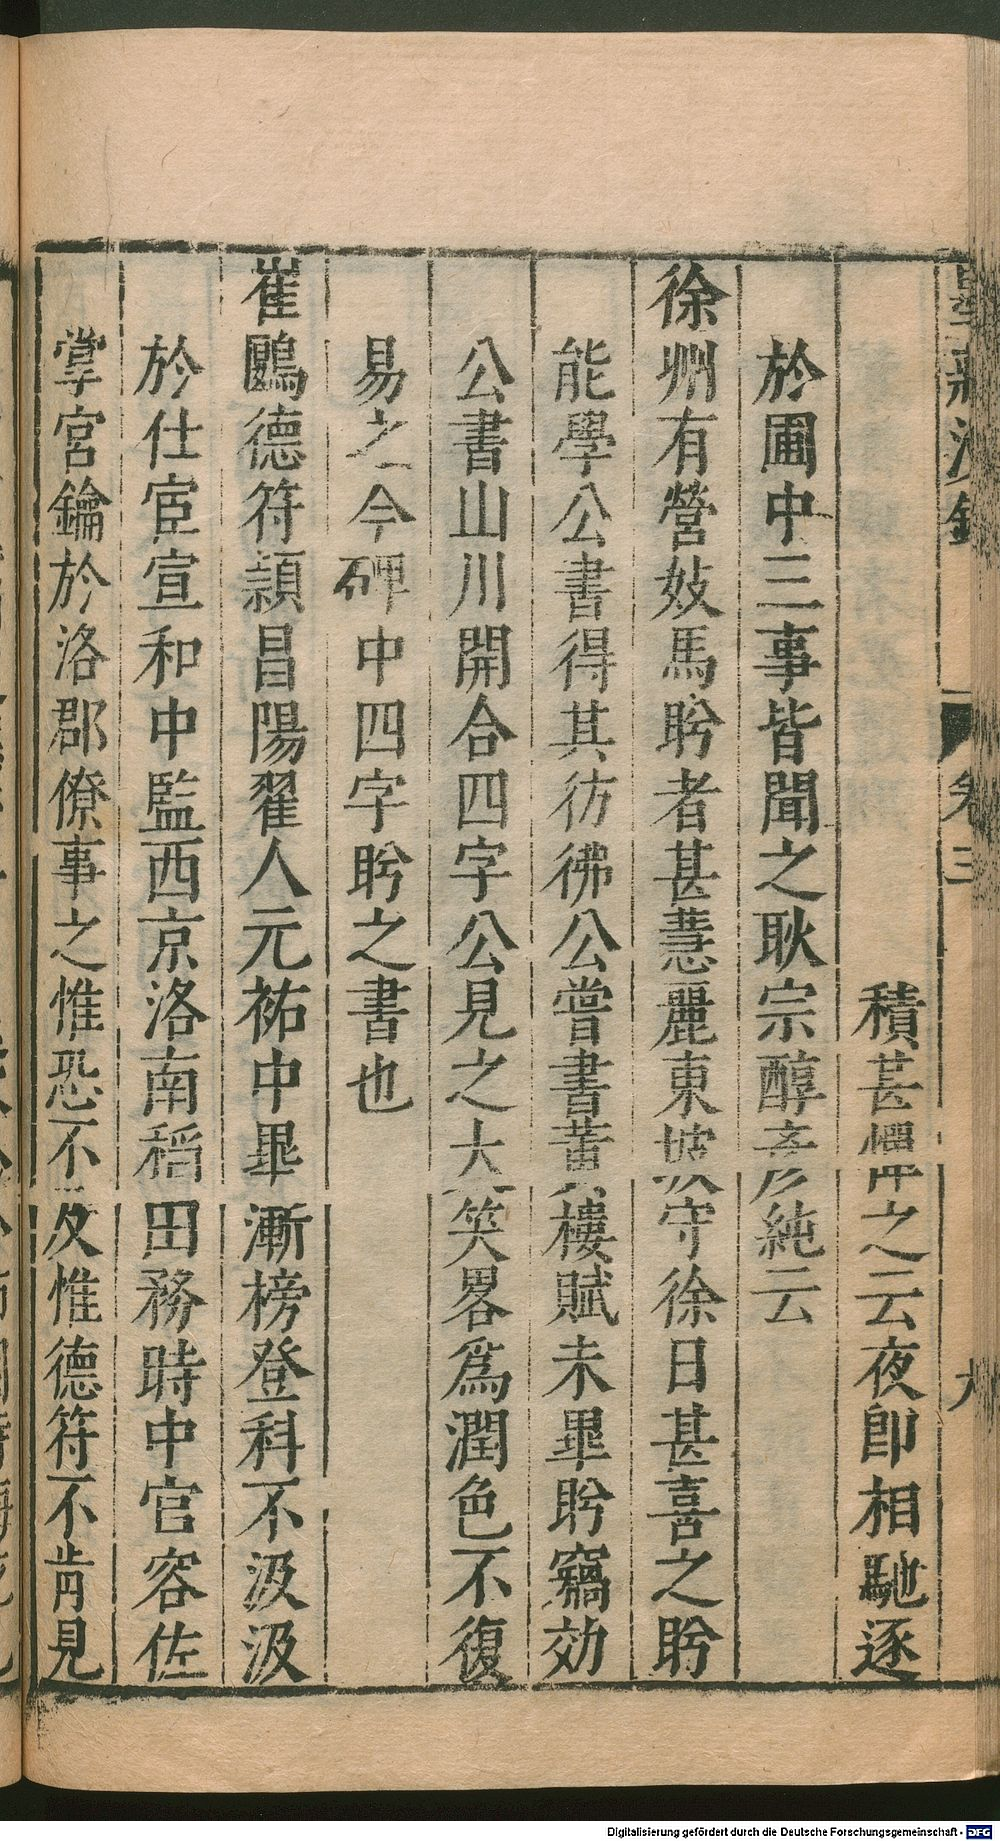 墅 漫錄 卷三 九
積甚懼之云夜卽相馳逐
於圃中三事皆聞之耿宗醇彥純云
徐州有營妓馬盼者甚慧麗東坡守徐日甚喜之盼
能學公書得其彷彿公嘗書黃樓賦未畢盼竊効
公書山川開合四字公見之大笑畧爲潤色不復
易之今碑中四字盼之書也
崔鷗德符潁昌陽翟人元祐中畢漸榜登科不汲汲
於仕宦宣和中監西京洛南稻田務時中官容佐
掌宮鑰於洛郡僚事之惟恐不及惟德符不肯見
Digitalisierung gefördert durch die Deutsche Forschungsgemeinschaft - DFG